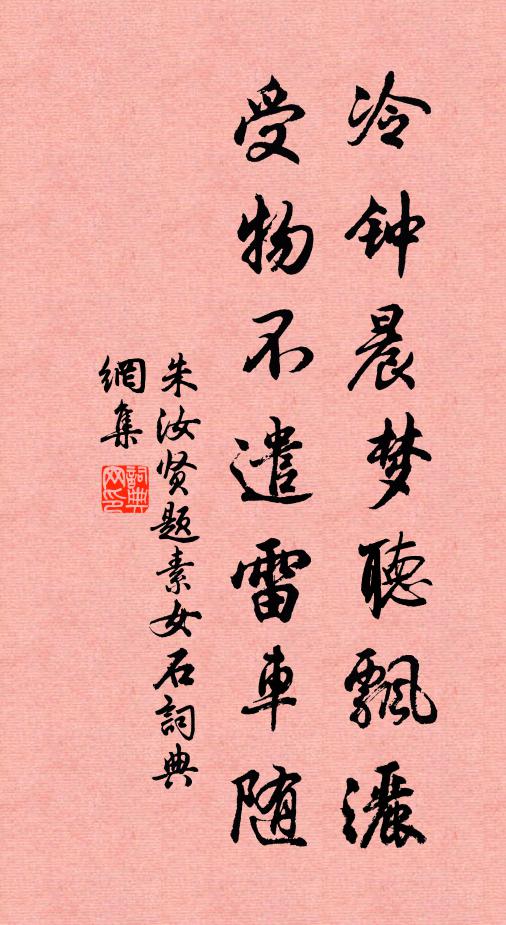 冷钟晨梦聽飄灑
受物不遣雷車随
朱汝贤题素女石詞典
網集
詞典
网印